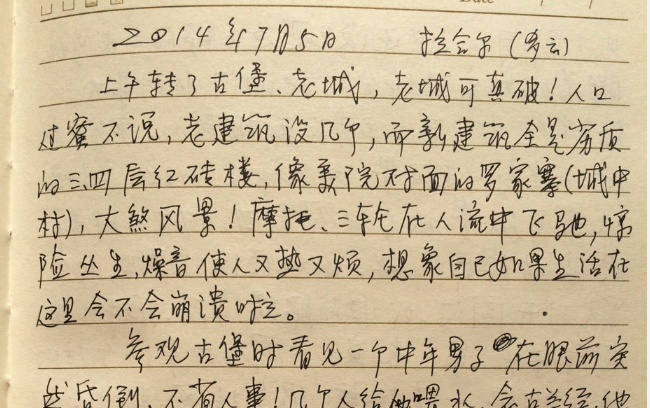 Date
2014年7月5日 拉合尔（多云）
上午转了古堡、老城，老城可真破！人口
过密不说，老建筑没几个，而新建筑全是劣质
的三四层红砖楼，像美院对面的罗家寨（城中
村），大煞风景！摩托、三轮在人流中飞驰，惊
险丛生，燥音使人又热又烦，想象自己如果生活在
这里会不会崩溃呀。
参观古堡时看见一个中年男子在眼前突
然昏倒，不省人事！几个人给他喂水，会古兰经他